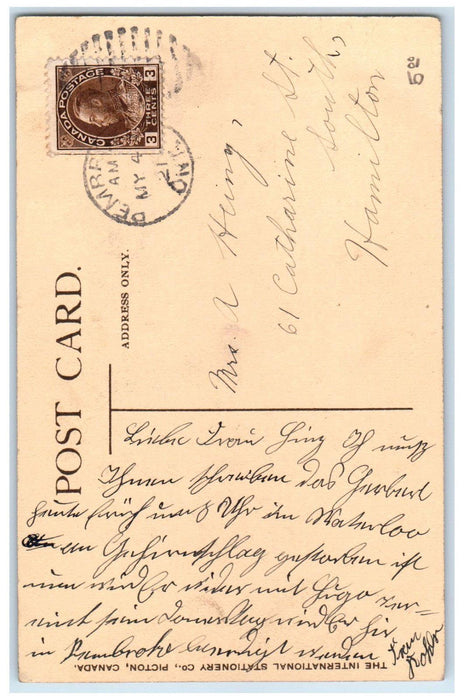 CANADA POSTAGE
3 THREE CENTS 3
PEMBROKE
AM
MY 4
21
ONT.
POST CARD.
ADDRESS ONLY.
Mrs. A Heing,
61 Catharine St.
South,
Hamilton
Liebe Frau Hing Ich muß
Ihnen schreiben das Herbert
heute früh um 8 Uhr in Waterloo
an Gehirnschlag gestorben ist
nun wird Er wider mit Hugo ver=
eint sein Donerstag wird Er hir
in Pembroke beerdigt werden
Frau
THE INTERNATIONAL STATIONERY CO., PICTON, CANADA.